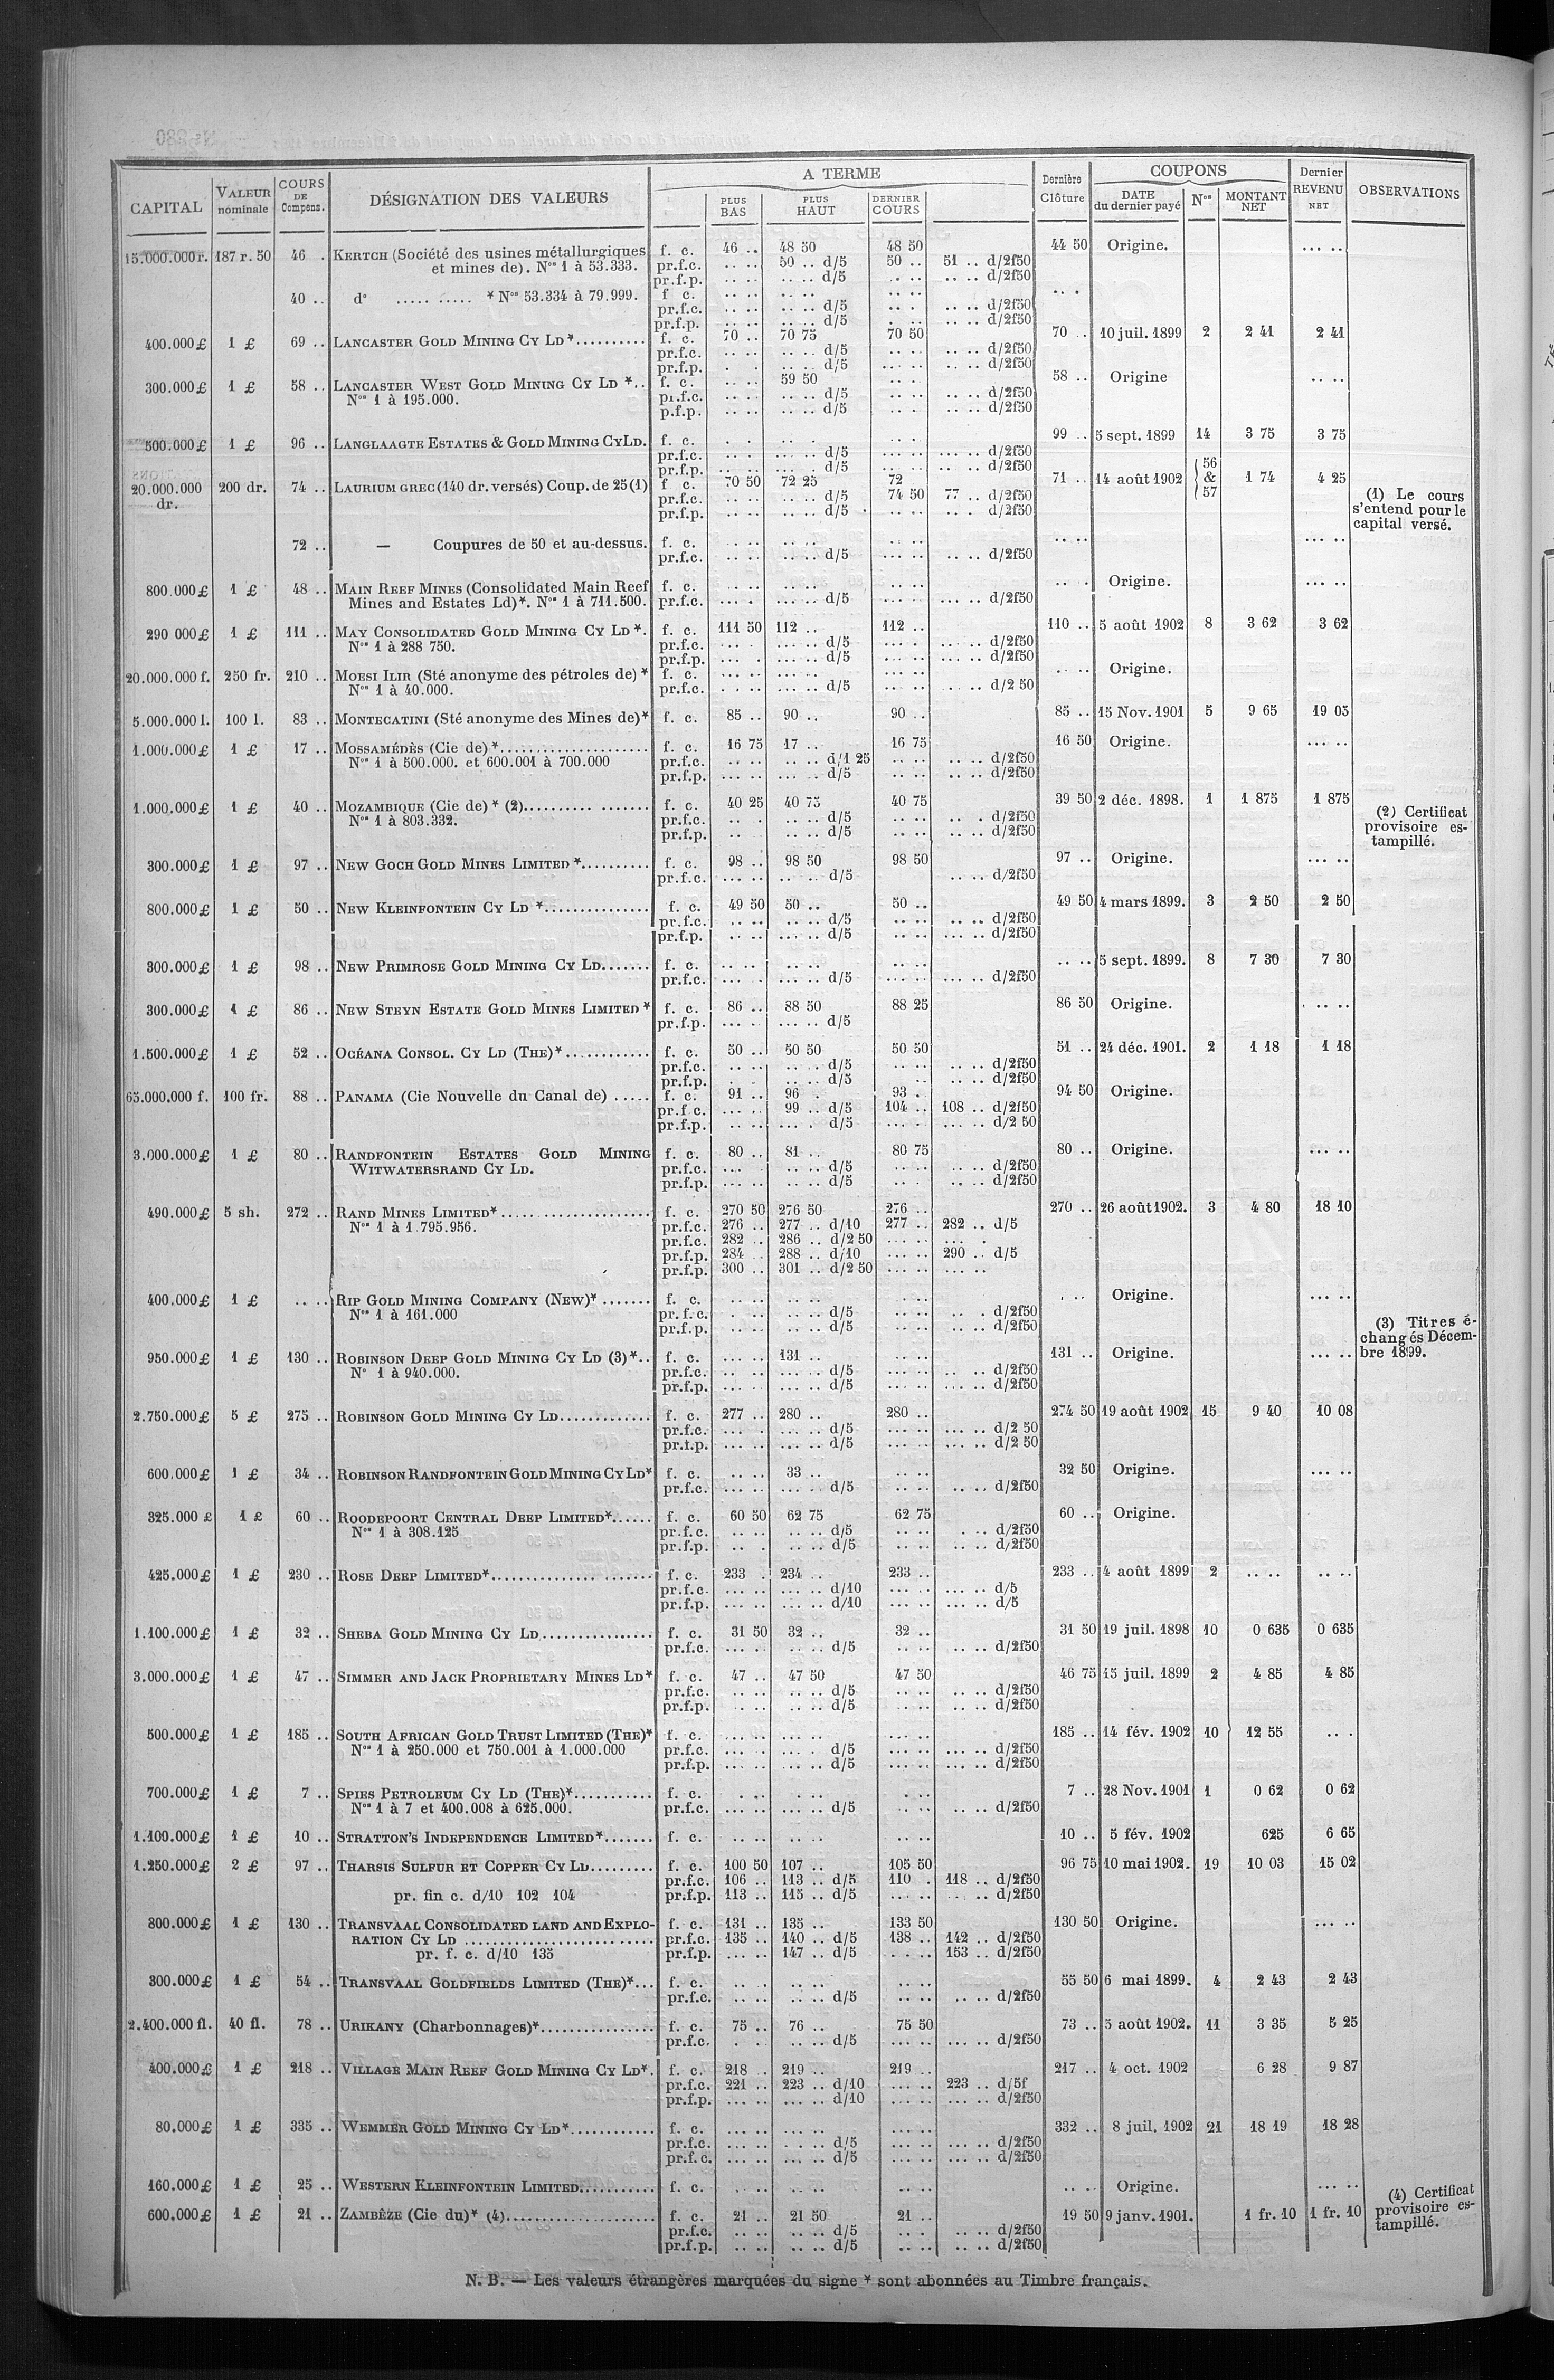 CAPITAL | VALEUR nominale | COURS DE Compens. | DÉSIGNATION DES VALEURS | A TERME | PLUS BAS | PLUS HAUT | DERNIER COURS | Dernière Clôture | COUPONS | DATE du dernier payé | Nos | MONTANT NET | Dernier REVENU NET | OBSERVATIONS
15.000.000 r. 187 r. 50 46 . KERTCH (Société des usines métallurgiques f. c. 46 .. 48 50 48 50 44 50 Origine. ... ..
et mines de). Nos 1 à 53.333. pr.f.c. .. .. 50 .. d/5 50 .. 51 .. d/2f50
pr.f.p. .. .. .. .. d/5 .. .. .. .. d/2f50
40 .. do ..... ..... * Nos 53.334 à 79.999. f c. .. .. .. .. .. .. .. .
pr.f.c. .. .. .. .. d/5 .. . .. .. d/2f50
pr.f.p. .. .. .. .. d/5 . .. .. .. d/2f50
400.000 £ 1 £ 69 .. LANCASTER GOLD MINING CY LD *.......... f. c. 70 .. 70 75 70 50 70 .. 10 juil. 1899 2 2 41 2 41
pr.f.c. .. .. .. .. d/5 .. .. .. .. d/2f50
pr.f.p. . . . .. .. d/5 ... .. .. .. d/2f50
300.000 £ 1 £ 58 .. LANCASTER WEST GOLD MINING CY LD *.. f. c. .. .. 59 50 .. . 58 .. Origine .. ..
Nos 1 à 195.000. pr.f.c. .. .. .. .. d/5 .. .. .. .. d/2f50
p.f.p. .. .. .. .. d/5 .. . .. .. d/2f50
500.000 £ 1 £ 96 .. LANGLAAGTE ESTATES & GOLD MINING CY LD. f. c. . . .. . .. .. 99 .. 5 sept. 1899 14 3 75 3 75
pr.f.c. .. . ... .. d/5 ... .. ... .. d/2f50
pr.f.p. .. .. ... .. d/5 ... .. .. .. d/2f50
20.000.000 dr. 200 dr. 74 .. LAURIUM GREC (140 dr. versés) Coup. de 25 (1) f c. 70 50 72 25 72 71 .. 14 août 1902 56 & 57 1 74 4 25
pr.f.c. .. .. .. .. d/5 74 50 77 .. d/2f50 (1) Le cours
pr.f.p. .. .. .. .. d/5 .. .. .. . d/2f50 s'entend pour le
capital versé.
72 .. — Coupures de 50 et au-dessus. f. c. .. .. .. .. . .. .. .. ... ..
pr.f.c. .. .. ... .. d/5 .. .. .. .. d/2f50
800.000 £ 1 £ 48 .. MAIN REEF MINES (Consolidated Main Reef f. c. .. .. .. .. .. .. .. . Origine. ... ..
Mines and Estates Ld)*. Nos 1 à 711.500. pr.f.c. ... . ... .. d/5 .. .. ... .. d/2f50
290 000 £ 1 £ 111 .. MAY CONSOLIDATED GOLD MINING CY LD *. f. c. 111 50 112 .. 112 .. 110 .. 5 août 1902 8 3 62 3 62
Nos 1 à 288 750. pr.f.c. ... . ... .. d/5 ... . ... .. d/2f50
pr.f.p. ... . ... .. d/5 ... .. ... .. d/2f50
20.000.000 f. 250 fr. 210 .. MOESI ILIR (Sté anonyme des pétroles de) * f. c. ... .. ... .. ... .. . .. Origine.
Nos 1 à 40.000. pr.f.c. . . .. ... .. d/5 ... .. ... .. d/2 50
5.000.000 l. 100 l. 83 .. MONTECATINI (Sté anonyme des Mines de)* f. c. 85 .. 90 .. 90 .. 85 .. 15 Nov. 1901 5 9 65 19 05
1.000.000 £ 1 £ 17 .. MOSSAMÉDÈS (Cie de) *..................... f. c. 16 75 17 .. 16 75 16 50 Origine. ... ..
Nos 1 à 500.000. et 600.001 à 700.000 pr.f.c. .. .. .. .. d/1 25 .. .. .. .. d/2f50
pr.f.p. ... .. ... .. d/5 .. .. .. .. d/2f50
1.000.000 £ 1 £ 40 .. MOZAMBIQUE (Cie de) * (2).......... ....... f. c. 40 25 40 75 40 75 39 50 2 déc. 1898. 1 1 875 1 875
Nos 1 à 803.332. pr.f.c. .. . .. .. d/5 .. .. .. . d/2f50 (2) Certificat
pr.f.p. .. . .. .. d/5 .. .. .. .. d/2f50 provisoire es-
tampillé.
300.000 £ 1 £ 97 .. NEW GOCH GOLD MINES LIMITED *.......... f. c. 98 .. 98 50 98 50 97 .. Origine. ... ..
pr.f.c. ... .. .. . d/5 .. .. d/2f50
800.000 £ 1 £ 50 .. NEW KLEINFONTEIN CY LD *............... f. c. 49 50 50 .. 50 .. 49 50 4 mars 1899. 3 2 50 2 50
pr.f.c. .. .. .. .. d/5 .. .. .. .. d/2f50
pr.f.p. .. .. ... .. d/5 .. .. ... .. d/2f50
300.000 £ 1 £ 98 .. NEW PRIMROSE GOLD MINING CY LD....... f. c. .. .. .. .. .. .. .. .. 5 sept. 1899. 8 7 30 7 30
pr.f.c. ... . ... .. d/5 ... .. .. .. d/2f50
300.000 £ 1 £ 86 .. NEW STEYN ESTATE GOLD MINES LIMITED * f. c. 86 .. 88 50 88 25 86 50 Origine. . .. ..
pr.f.p. ... . ... .. d/5
1.500.000 £ 1 £ 52 .. OCÉANA CONSOL. CY LD (THE)*............ f. c. 50 .. 50 50 50 50 51 .. 24 déc. 1901. 2 1 18 1 18
pr.f.c. .. .. .. .. d/5 .. .. .. .. d/2f50
pr.f.p. . . .. .. d/5 .. .. .. d/2f50
65.000.000 f. 100 fr. 88 .. PANAMA (Cie Nouvelle du Canal de) ..... f. c. 91 .. 96 . 93 . 94 50 Origine.
pr.f.c. ... . 99 .. d/5 104 .. 108 .. d/2f50
pr.f.p. ... .. ... . d/5 ... . ... .. d/2 50
3.000.000 £ 1 £ 80 .. RANDFONTEIN ESTATES GOLD MINING f. c. 80 .. 81 .. 80 75 80 .. Origine. ... ..
WITWATERSRAND CY LD. pr.f.c. ... .. .. d/5 .. . .. .. d/2f50
pr.f.p. ... .. .. .. d/5 .. . .. .. d/2f50
490.000 £ 5 sh. 272 .. RAND MINES LIMITED*...................... f. c. 270 50 276 50 276 .. 270 .. 26 août 1902. 3 4 80 18 10
Nos 1 à 1.795.956. pr.f.c. 276 .. 277 .. d/10 277 .. 282 .. d/5
pr.f.c. 282 .. 286 .. d/2 50 ... .. ... .
pr.f.p. 284 .. 288 .. d/10 ... .. 290 .. d/5
pr.f.p. 300 .. 301 .. d/2 50 ... .. ... ..
400.000 £ 1 £ .. .. RIP GOLD MINING COMPANY (NEW)* ....... f. c. .. .. .. .. .. .. . .. Origine. ... ..
Nos 1 à 161.000 pr.f.c. . .. .. .. d/5 .. .. .. . d/2f50
pr.f.p. .. .. .. .. d/5 .. .. .. .. d/2f50 (3) Titres é-
changés Décem-
bre 1899.
950.000 £ 1 £ 130 .. ROBINSON DEEP GOLD MINING CY LD (3)*.. f. c. ... .. 131 .. .. .. 131 .. Origine. ... ..
No 1 à 940.000. pr.f.c. ... .. ... .. d/5 ... .. .. .. d/2f50
pr.f.p. ... .. ... .. d/5 ... .. ... .. d/2f50
2.750.000 £ 5 £ 275 .. ROBINSON GOLD MINING CY LD............. f. c. 277 .. 280 .. 280 .. 274 50 19 août 1902 15 9 40 10 08
pr.f.c. ... . ... .. d/5 ... .. ... .. d/2 50
pr.f.p. ... .. ... .. d/5 ... .. ... .. d/2 50
600.000 £ 1 £ 34 .. ROBINSON RANDFONTEIN GOLD MINING CY LD* f. c. .. .. 33 .. .. .. 32 50 Origine. ... ..
pr.f.c. ... .. ... .. d/5 ... .. .. .. d/2f50
325.000 £ 1 £ 60 .. ROODEPOORT CENTRAL DEEP LIMITED*...... f. c. 60 50 62 75 62 75 60 .. Origine.
Nos 1 à 308.125 pr.f.c. .. .. .. .. d/5 .. .. . .. d/2f50
pr.f.p. .. . .. .. d/5 .. .. .. .. d/2f50
425.000 £ 1 £ 230 .. ROSE DEEP LIMITED*............... ....... f. c. 233 . 234 .. 233 .. 233 .. 4 août 1899 2 .. .. .. ..
pr.f.c. ... .. ... .. d/10 ... .. ... .. d/5
pr.f.p. ... .. ... .. d/10 ... .. ... .. d/5
1.100.000 £ 1 £ 32 .. SHEBA GOLD MINING CY LD................ f. c. 31 50 32 .. 32 .. 31 50 19 juil. 1898 10 0 635 0 635
pr.f.c. ... . .. .. d/5 .. .. .. .. d/2f50
3.000.000 £ 1 £ 47 .. SIMMER AND JACK PROPRIETARY MINES LD* f. c. 47 .. 47 50 47 50 46 75 15 juil. 1899 2 4 85 4 85
pr.f.c. .. .. .. .. d/5 .. .. .. .. d/2f50
pr.f.p. .. .. .. .. d/5 .. .. .. .. d/2f50
500.000 £ 1 £ 185 .. SOUTH AFRICAN GOLD TRUST LIMITED (THE)* f. c. ... .. ... .. ... .. 185 .. 14 fév. 1902 10 12 55 .. .
Nos 1 à 250.000 et 750.001 à 1.000.000 pr.f.c. ... . ... . d/5 ... .. ... .. d/2f50
pr.f.p. ... .. ... . d/5 ... .. ... .. d/2f50
700.000 £ 1 £ 7 .. SPIES PETROLEUM CY LD (THE)*........... f. c. . .. .. .. . .. 7 .. 28 Nov. 1901 1 0 62 0 62
Nos 1 à 7 et 400.008 à 625.000. pr.f.c. ... .. ... .. d/5 .. .. .. .. d/2f50
1.100.000 £ 1 £ 10 .. STRATTON'S INDEPENDENCE LIMITED*....... f. c. .. .. .. .. .. .. 10 .. 5 fév. 1902 625 6 65
1.250.000 £ 2 £ 97 .. THARSIS SULFUR ET COPPER CY LD......... f. c. 100 50 107 .. 105 50 96 75 10 mai 1902. 19 10 03 15 02
pr.f.c. 106 .. 113 .. d/5 110 . 118 .. d/2f50
pr. fin c. d/10 102 104 pr.f.p. 113 .. 115 .. d/5 ... .. .. .. d/2f50
800.000 £ 1 £ 130 .. TRANSVAAL CONSOLIDATED LAND AND EXPLO- f. c. 131 .. 135 .. 133 50 130 50 Origine. ... ..
RATION CY LD ........................... pr.f.c. 135 .. 140 .. d/5 138 .. 142 .. d/2f50
pr. f. c. d/10 135 pr.f.p. ... .. 147 .. d/5 . . .. 153 .. d/2f50
300.000 £ 1 £ 54 .. TRANSVAAL GOLDFIELDS LIMITED (THE)*... f. c. .. . .. .. .. .. 55 50 6 mai 1899. 4 2 43 2 43
pr.f.c. .. .. .. .. d/5 .. .. .. .. d/2f50
2.400.000 fl. 40 fl. 78 .. URIKANY (Charbonnages)*................ f. c. 75 .. 76 .. 75 50 73 .. 5 août 1902. 11 3 35 5 25
pr.f.c. . . .. .. d/5 .. .. ... .. d/2f50
400.000 £ 1 £ 218 .. VILLAGE MAIN REEF GOLD MINING CY LD*. f. c. 218 . 219 .. 219 .. 217 .. 4 oct. 1902 6 28 9 87
pr.f.c. 221 .. 223 .. d/10 ... .. 223 .. d/5f
pr.f.p. ... .. ... .. d/10 ... .. ... .. d/2f50
80.000 £ 1 £ 335 .. WEMMER GOLD MINING CY LD*............ f. c. ... .. ... .. ... .. 332 .. 8 juil. 1902 21 18 19 18 28
pr.f.c. ... .. . . .. d/5 ... .. ... .. d/2f50
pr.f.c. ... .. ... .. d/5 ... .. ... .. d/2f50
160.000 £ 1 £ 25 .. WESTERN KLEINFONTEIN LIMITED........... f. c. .. .. .. .. .. .. .. .. Origine. ... ..
600.000 £ 1 £ 21 .. ZAMBÈZE (Cie du)* (4)..................... f. c. 21 .. 21 50 21 .. 19 50 9 janv. 1901. 1 fr. 10 1 fr. 10 (4) Certificat
pr.f.c. .. .. .. .. d/5 .. . .. .. d/2f50 provisoire es-
pr.f.p. .. .. .. .. d/5 .. .. .. .. d/2f50 tampillé.
N. B. — Les valeurs étrangères marquées du signe * sont abonnées au Timbre français.